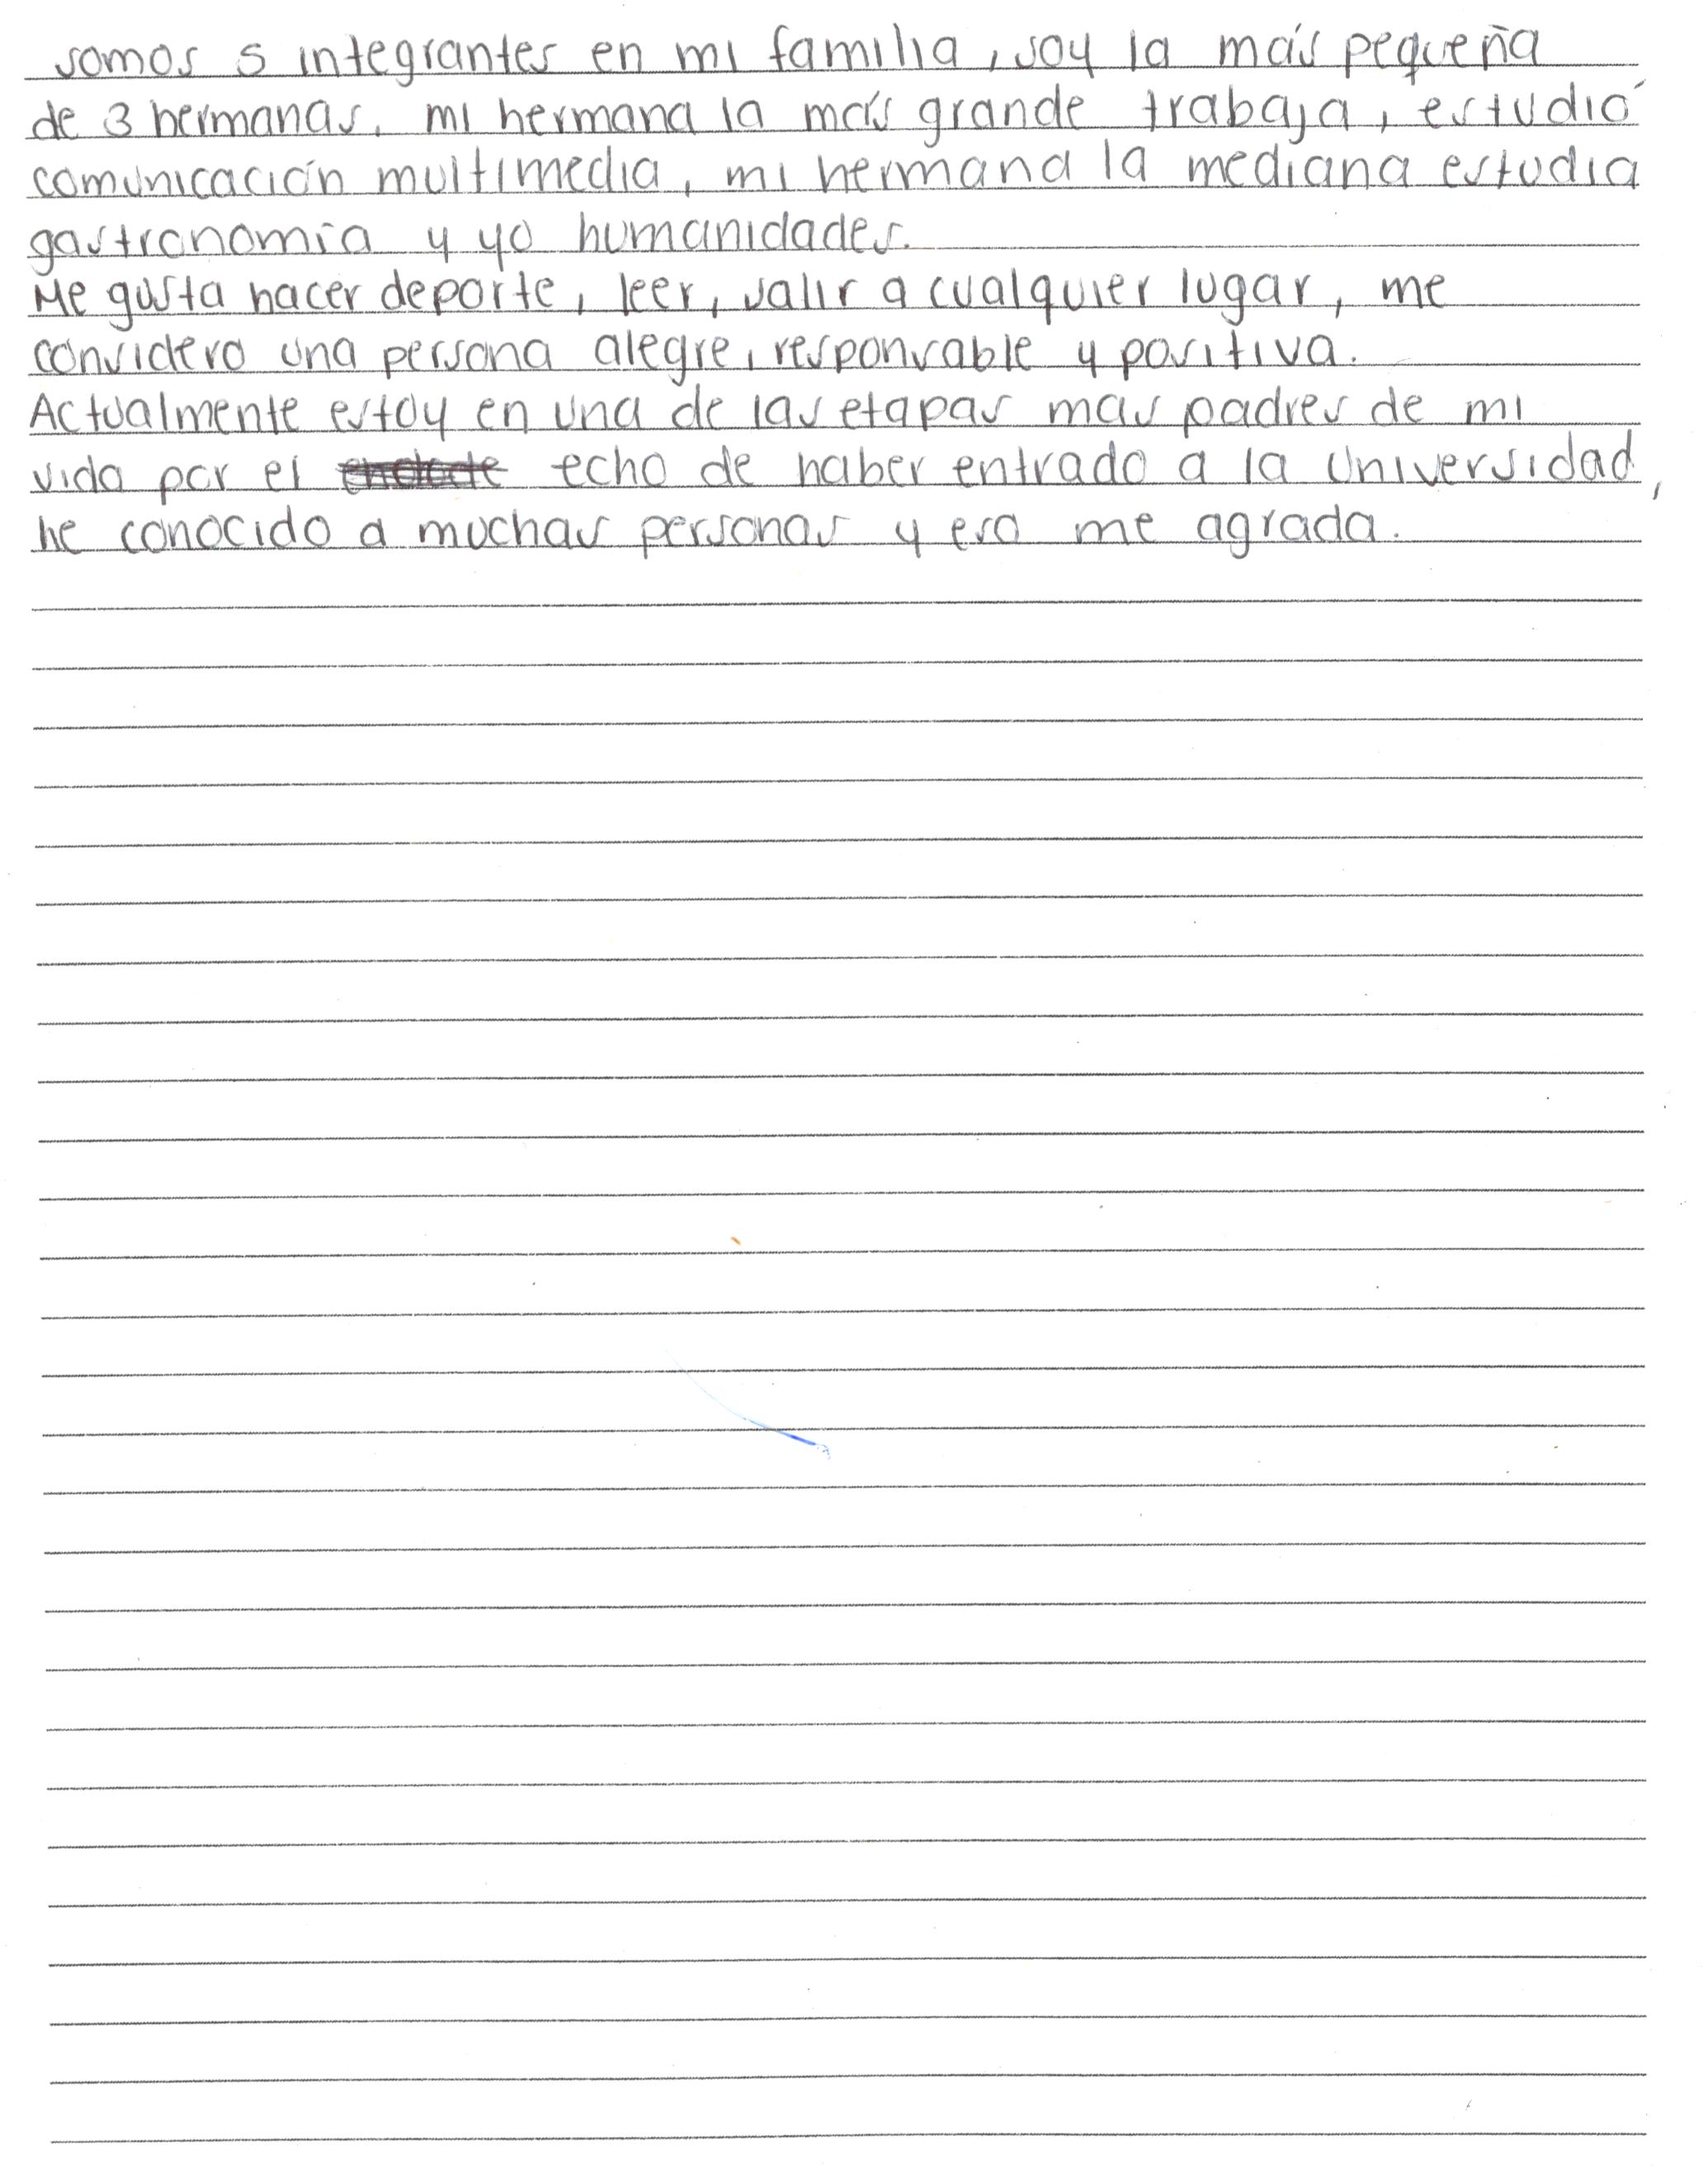 somos 5 integrantes en mi familia, soy la más pequeña
de 3 hermanas. mi hermana la más grande trabaja, estudió
comunicación multimedia, mi hermana la mediana estudia
gastronomía y yo humanidades.
Me gusta hacer deporte, leer, salir a cualquier lugar, me
considero una persona alegre, responsable y positiva.
Actualmente estoy en una de las etapas mas padres de mi
vida por el echo de haber entrado a la Universidad,
he conocido a muchas personas y eso me agrada.